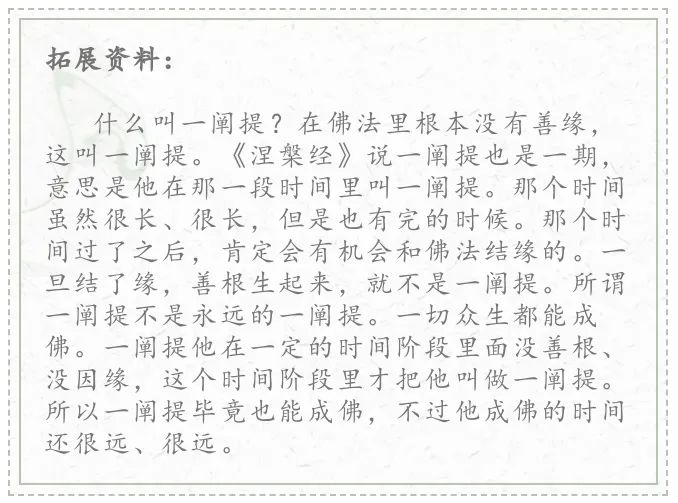 拓展资料：
什么叫一阐提？在佛法里根本没有善缘，
这叫一阐提。《涅槃经》说一阐提也是一期，
意思是他在那一段时间里叫一阐提。那个时间
虽然很长、很长，但是也有完的时候。那个时
间过了之后，肯定会有机会和佛法结缘的。一
旦结了缘，善根生起来，就不是一阐提。所谓
一阐提不是永远的一阐提。一切众生都能成
佛。一阐提他在一定的时间阶段里面没善根、
没因缘，这个时间阶段里才把他叫做一阐提。
所以一阐提毕竟也能成佛，不过他成佛的时间
还很远、很远。